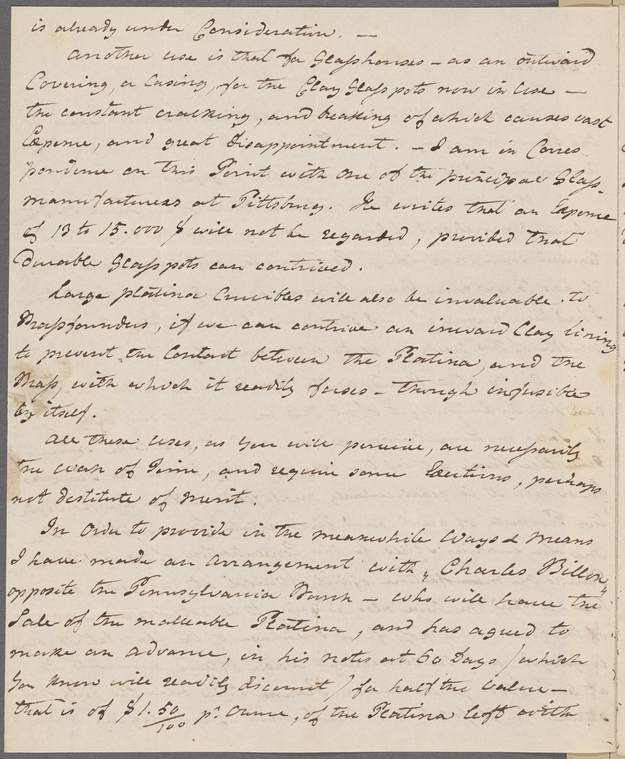 is already under Consideration. —
Another use is that for Glasshouses – as an outward
Covering, or Casing, for the Clay Glass pots now in Use –
the constant cracking, and breaking of which causes vast
Expense, and great disappointment. – I am in Corres
pondence on this Point with one of the principal Glass-
manufacturers at Pittsburg. He writes that an Expense
of 13 to 15.000 $ will not be regarded, provided that
durable Glasspots can contrived.
Large platina Crucibles will also be invaluable to
Brassfounders, if we can contrive an inward Clay lining
to prevent the Contact between the Platina, and the
Brass, with which it readily fuses – though infusible
by itself.
All these uses, as you will perceive, are necessarily
the work of Time, and require some Exertions, perhaps
not destitute of merit.
In Order to provide in the meanwhile Ways & Means
I have made an arrangement with „Charles Billon„
opposite the Pennsylvania Bank – who will have the
Sale of the malleable Platina, and has agreed to
make an advance, in his notes at 60 Days / which
you know will readily discount / for half the Value –
that is of $1. 50/100 pr. Ounce, of the Platina left with